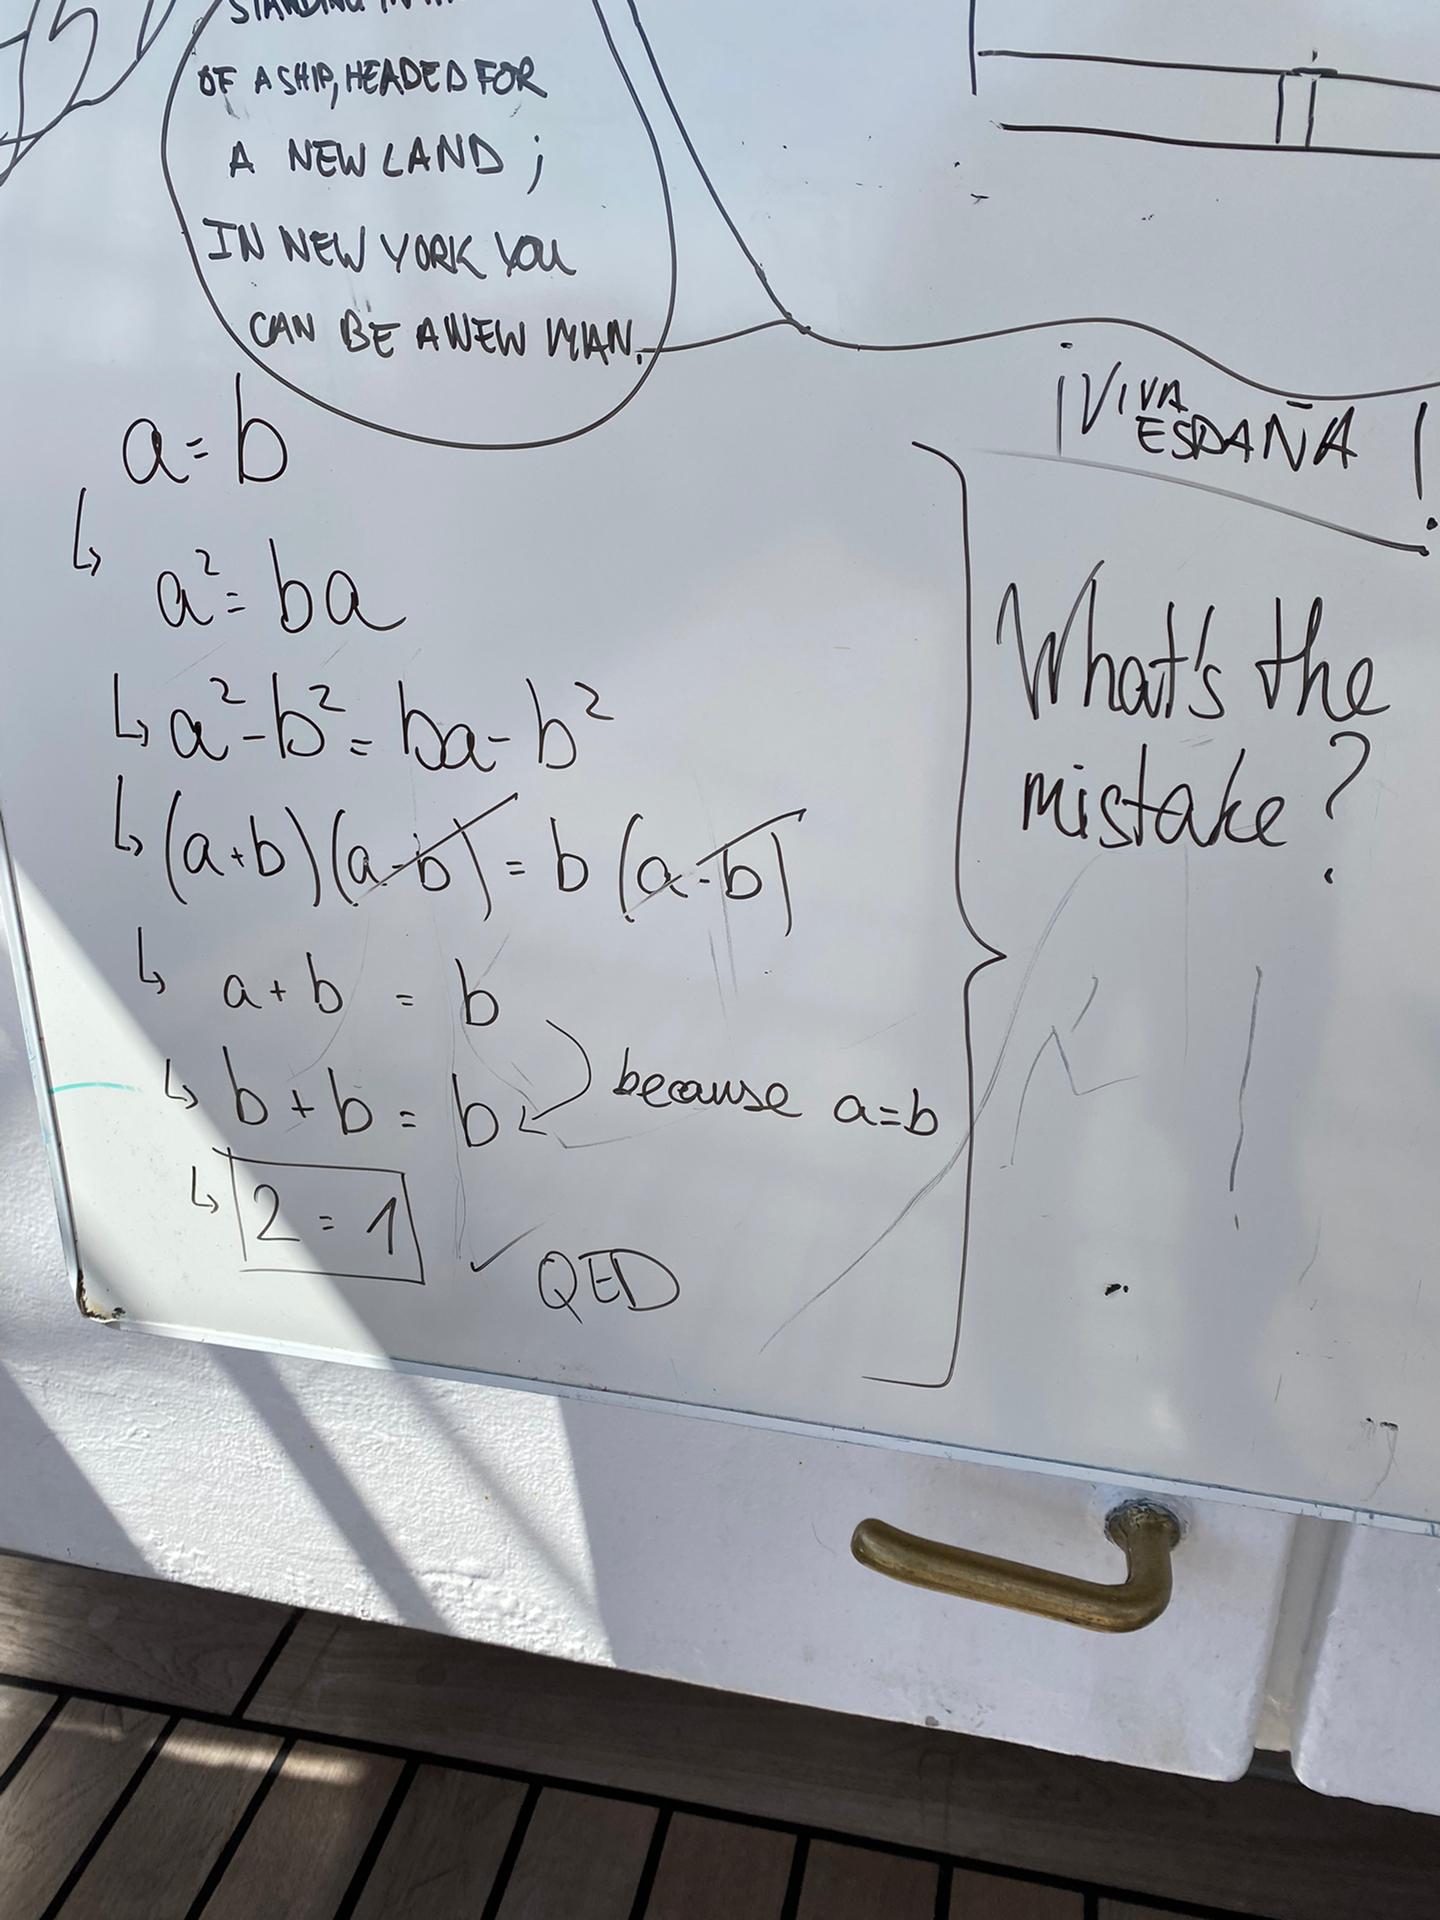 STANDING IN
OF A SHIP, HEADED FOR
A NEW LAND;
IN NEW YORK YOU
CAN BE A NEW MAN.
¡VIVA
ESPAÑA!
a = b
↳ a² = ba
↳ a² - b² = ba - b²
↳ (a+b)(a-b) = b (a-b)
↳ a + b = b
↳ b + b = b
because a=b
↳ 2 = 1
✓ QED
What's the
mistake?